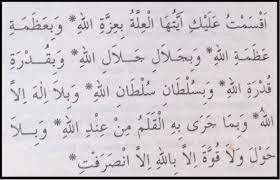 اَقْسَمْتُ عَلَيْكِ اَيَّتُهَا الْعِلَّةُ بِعِزَّةِ اللهِ * وَبِعَظَمَةِ
عَظَمَةِ اللهِ * وَبِجَلَالِ جَلَالِ اللهِ * وَبِقُدْرَةِ
قُدْرَةِ اللهِ * وَبِسُلْطَانِ سُلْطَانِ اللهِ * وَبِلَا اِلٰهَ اِلَّا
اللهُ * وَبِمَا جَرَى بِهِ الْقَلَمُ مِنْ عِنْدِ اللهِ * وَبِلَا
حَوْلَ وَلَا قُوَّةَ اِلَّا بِاللهِ اِلَّا انْصَرَفْتِ *